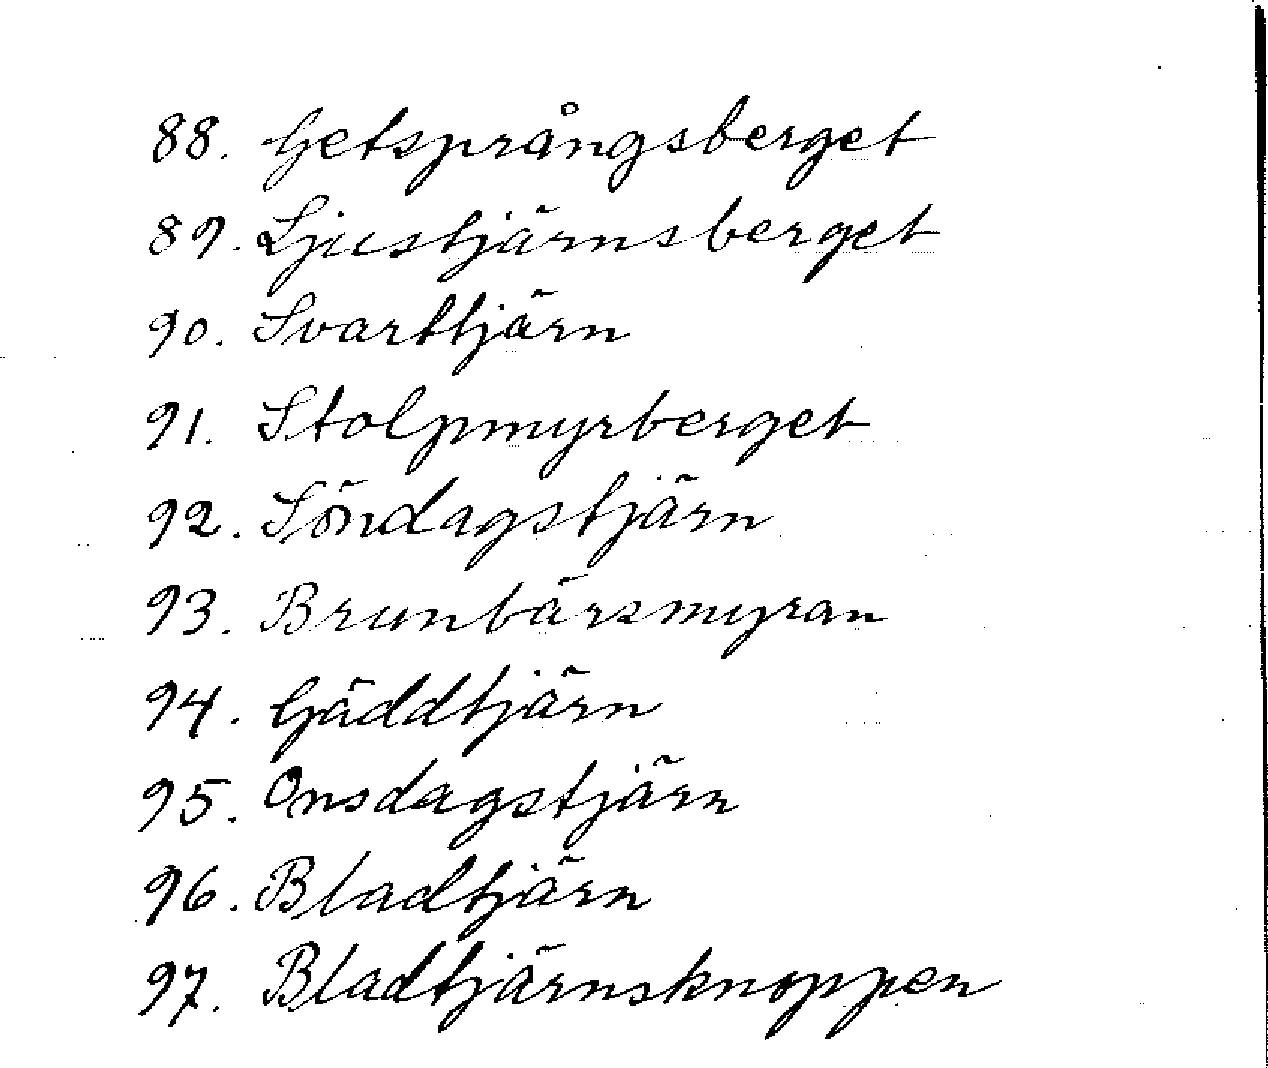 88. Getsprångsberget
89. Ljustjärnsberget
90. Svarttjärn
91. Stolpmyrberget
92. Söndagstjärn
93. Brunbärsmyran
94. Gäddtjärn
95. Onsdagstjärn
96. Bladtjärn
97. Bladtjärnsknoppen